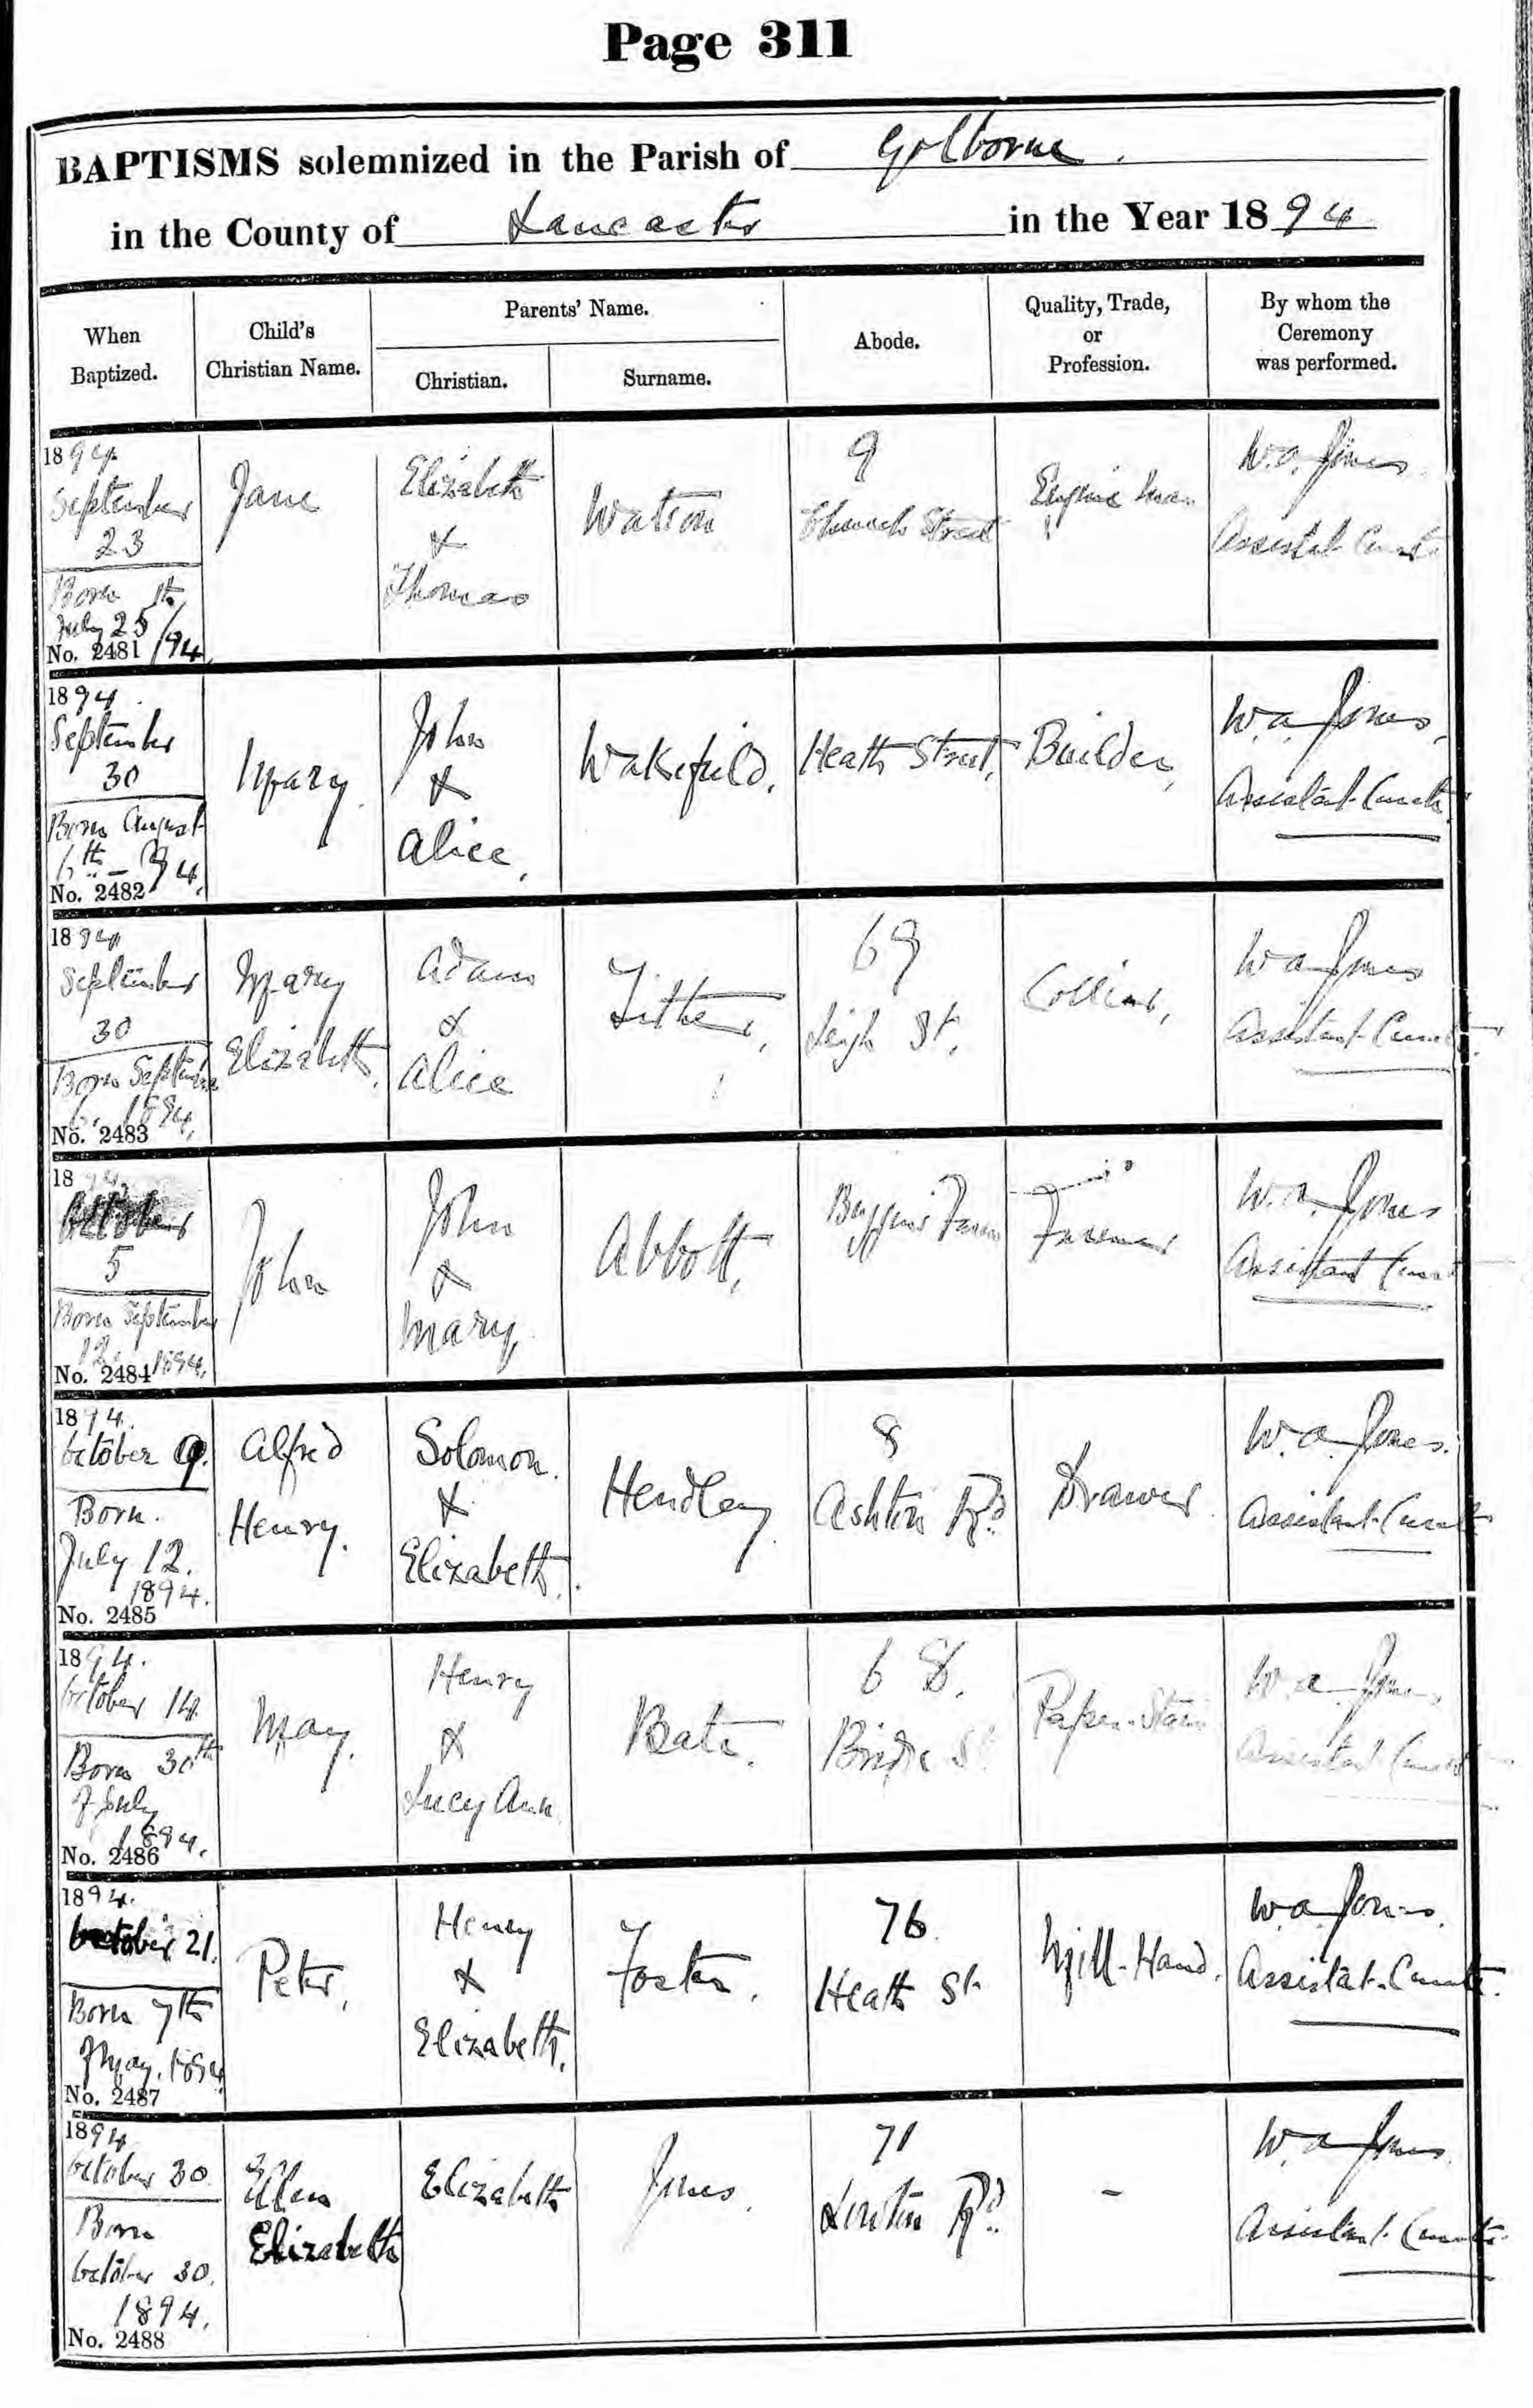 Page 311
BAPTISMS solemnized in the Parish of Golborne.
in the County of Lancaster in the Year 1894
When
Baptized.
Child's
Christian Name.
Parents' Name.
Christian.
Surname.
Abode.
Quality, Trade,
or
Profession.
By whom the
Ceremony
was performed.
1894
September
23
Born
July 25th/94
No. 2481
Jane
Elizabeth
&
Thomas
Watson
9
Church Street
Engine man
W.A. Jones
Assistant Curate
1894
September
30
Born August
6th - 94.
No. 2482
Mary
John
&
Alice,
Wakefield,
Heath Street,
Builder,
W.A. Jones,
Assistant Curate
1894
September
30
Born September
1894,
No. 2483
Mary
Elizabeth,
Adam
&
Alice
Tither,
69
Leigh St,
Collier,
W A Jones
Assistant Curate
1894
October
5
Born September
12 1894,
No. 2484
John
John
&
Mary,
Abbott,
Farm
Farmer
W.A. Jones
Assistant Curate
1894.
October 9.
Born.
July 12.
1894.
No. 2485
Alfred
Henry.
Solomon.
&
Elizabeth.
Hendley
8
Ashton Rd.
Drawer
W.A. Jones.
Assistant Curate
1894.
October 14.
Born 30th
of July
1894.
No. 2486
May.
Henry
&
Lucy Ann
Bate.
68.
Bridge St
Paper-Stainer
W.A. Jones,
Assistant Curate
1894.
October 21.
Born 7th
of May. 1894
No. 2487
Peter,
Henry
&
Elizabeth,
Foster,
76
Heath St
Mill-Hand,
W.A. Jones.
Assistant Curate.
1894
October 30
Born
October 30.
1894.
No. 2488
Ellen
Elizabeth
Elizabeth
Jones.
71
Lowton Rd.
-
W.A. Jones.
Assistant Curate.